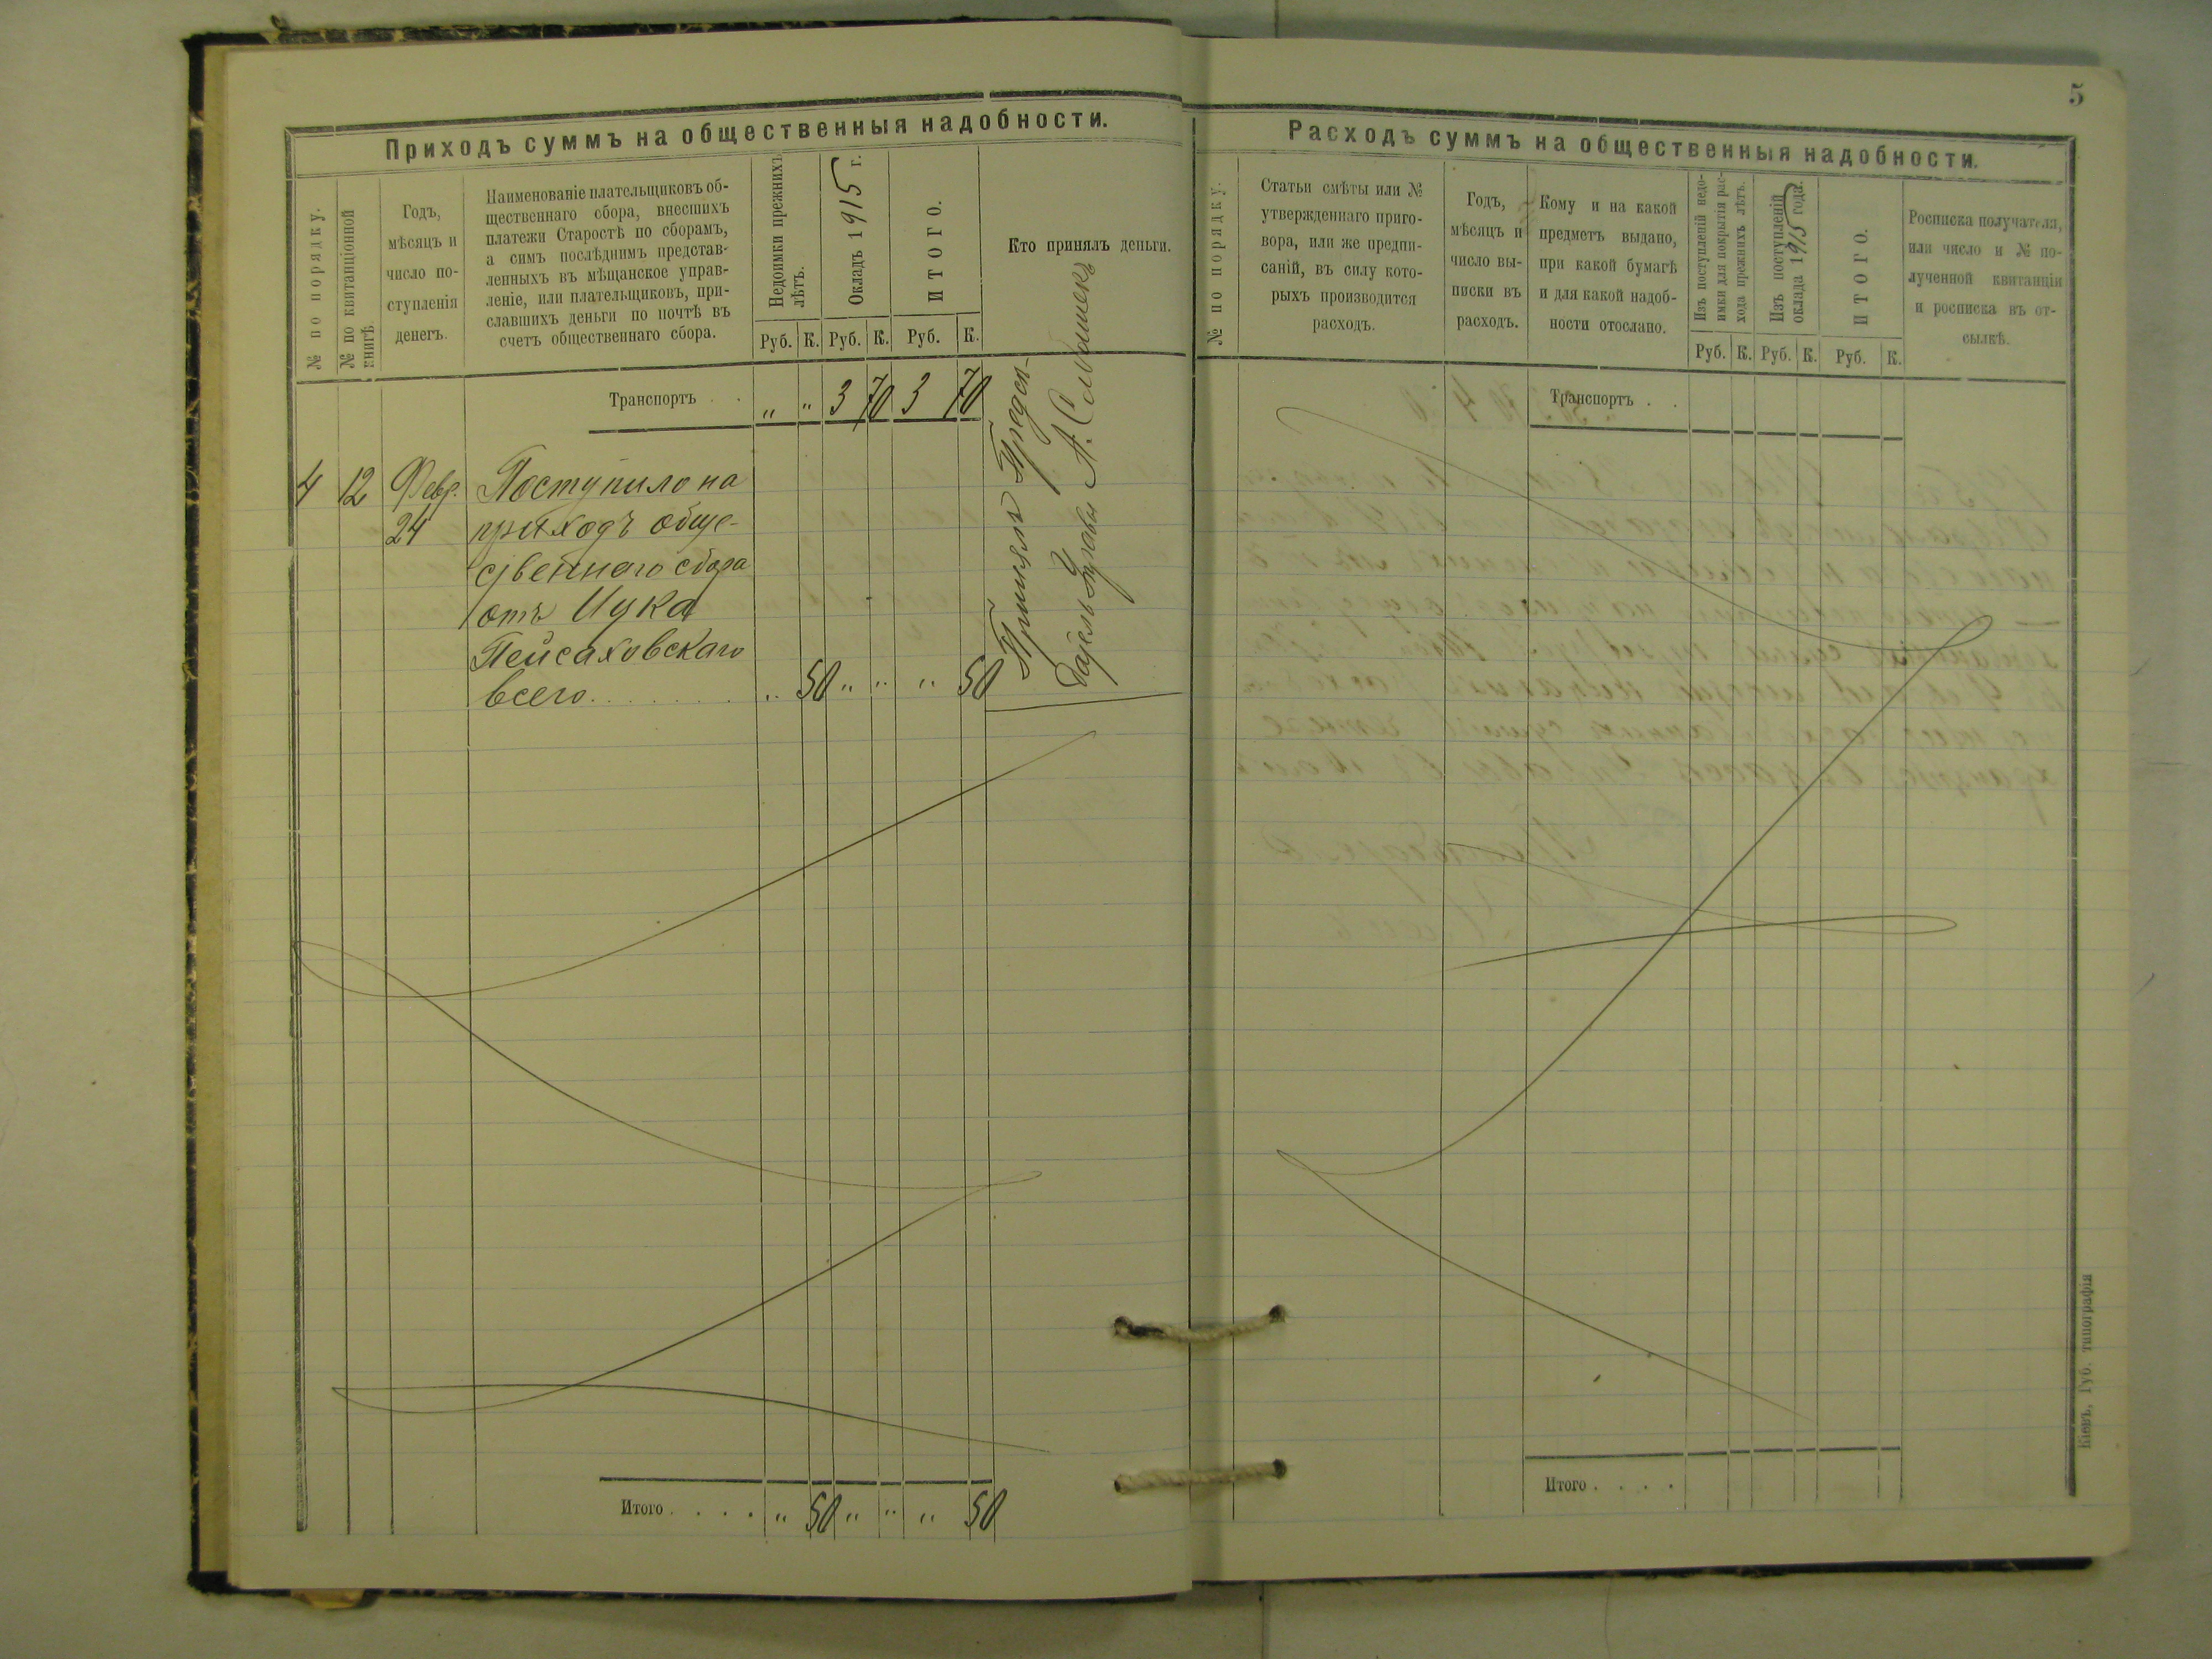 Приходъ суммъ на общественныя надобности.
№ по порядку.
№ по квитанціонной
книгѣ.
Годъ,
мѣсяцъ и
число по-
ступленія
денегъ.
Наименованіе плательщиковъ об-
щественнаго сбора, внесшихъ
платежи Старостѣ по сборамъ,
а симъ послѣднимъ представ-
ленныхъ въ мѣщанское управ-
леніе, или плательщиковъ, при-
славшихъ деньги по почтѣ въ
счетъ общественнаго сбора.
Недоимки прежнихъ
лѣтъ.
Окладъ 1915 г.
ИТОГО.
Кто принялъ деньги.
Руб. К. Руб. К. Руб. К.
Транспортъ . . „ „ 3 70 3 70
4 12 Февр. Поступило на
24 приходъ обще-
ственного сбора
отъ Ицка
Пейсаховскаго
всего . . . . . . „ 50 „ „ „ 50
Принялъ Предсѣ-
датель Управы А.
Итого . . . . „ 50 „ „ „ 50
5
Расходъ суммъ на общественныя надобности.
№ по порядку.
Статьи смѣты или №
утвержденнаго приго-
вора, или же предпи-
саній, въ силу кото-
рыхъ производится
расходъ.
Годъ,
мѣсяцъ и
число вы-
писки въ
расходъ.
Кому и на какой
предметъ выдано,
при какой бумагѣ
и для какой надоб-
ности отослано.
Изъ поступленій недо-
имки для покрытія рас-
хода прежнихъ лѣтъ.
Изъ поступленій
оклада 1915 года.
ИТОГО.
Росписка получателя,
или число и № по-
лученной квитанціи
и росписка въ от-
сылкѣ.
Руб. К. Руб. К. Руб. К.
Транспортъ . .
Итого . . . .
Кіевъ, Губ. типографія